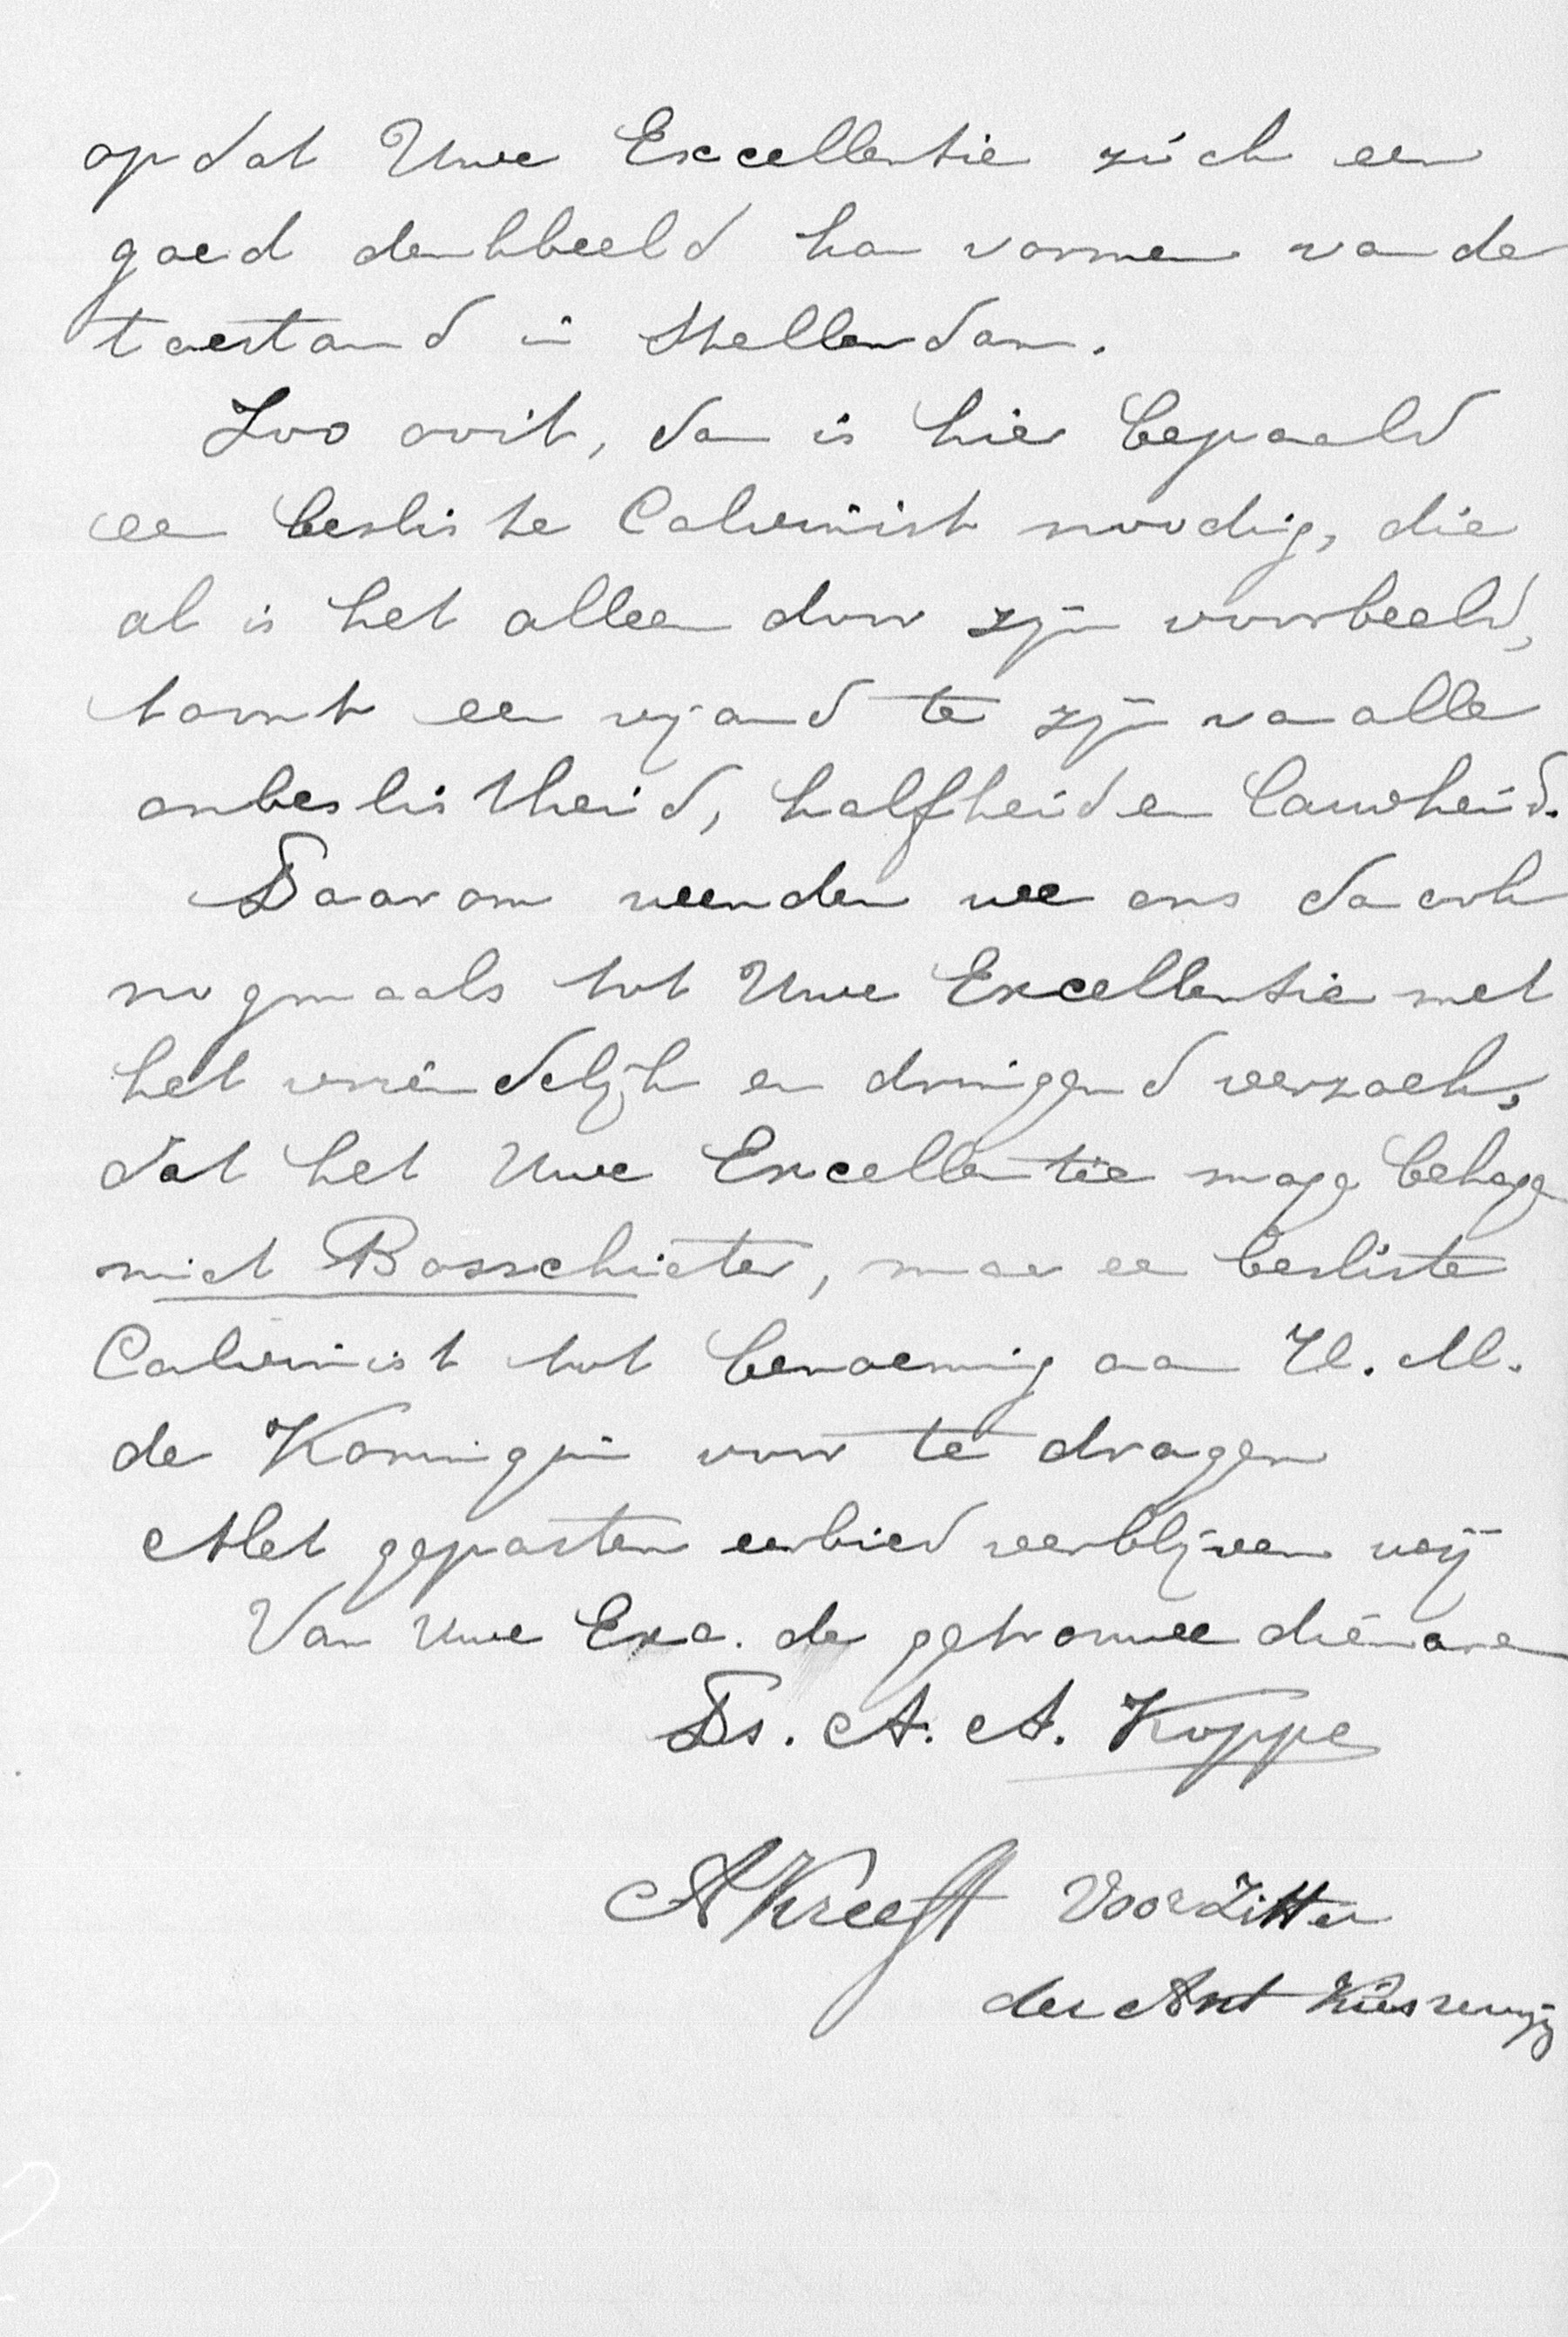 opdat Uwe Excellentie zich een
goed denkbeeld kan vormen van de
toestand in Stellendam.
Zoo ooit, dan is hier bepaald
een besliste Calvinist noodig, die
al is het alleen door zijn voorbeeld,
toont een vijand te zijn van alle
onbeslistheid, halfheid en lauwheid.
Daarom wenden we ons dan ook
nogmaals tot Uwe Excellentie met
het vriendelijk en dringend verzoek,
dat het Uwe Excellentie moge behagen
niet Bosschieter, maar een besliste
Calvinist tot benoeming aan H. M.
de Koningin voor te dragen
Met gepasten eerbied verblijven wij
Van Uwe Exc. de getrouwe dienaren
Ds. A. A. Koppe
A Kreeft Voorzitter
der Ant Kiesvereng